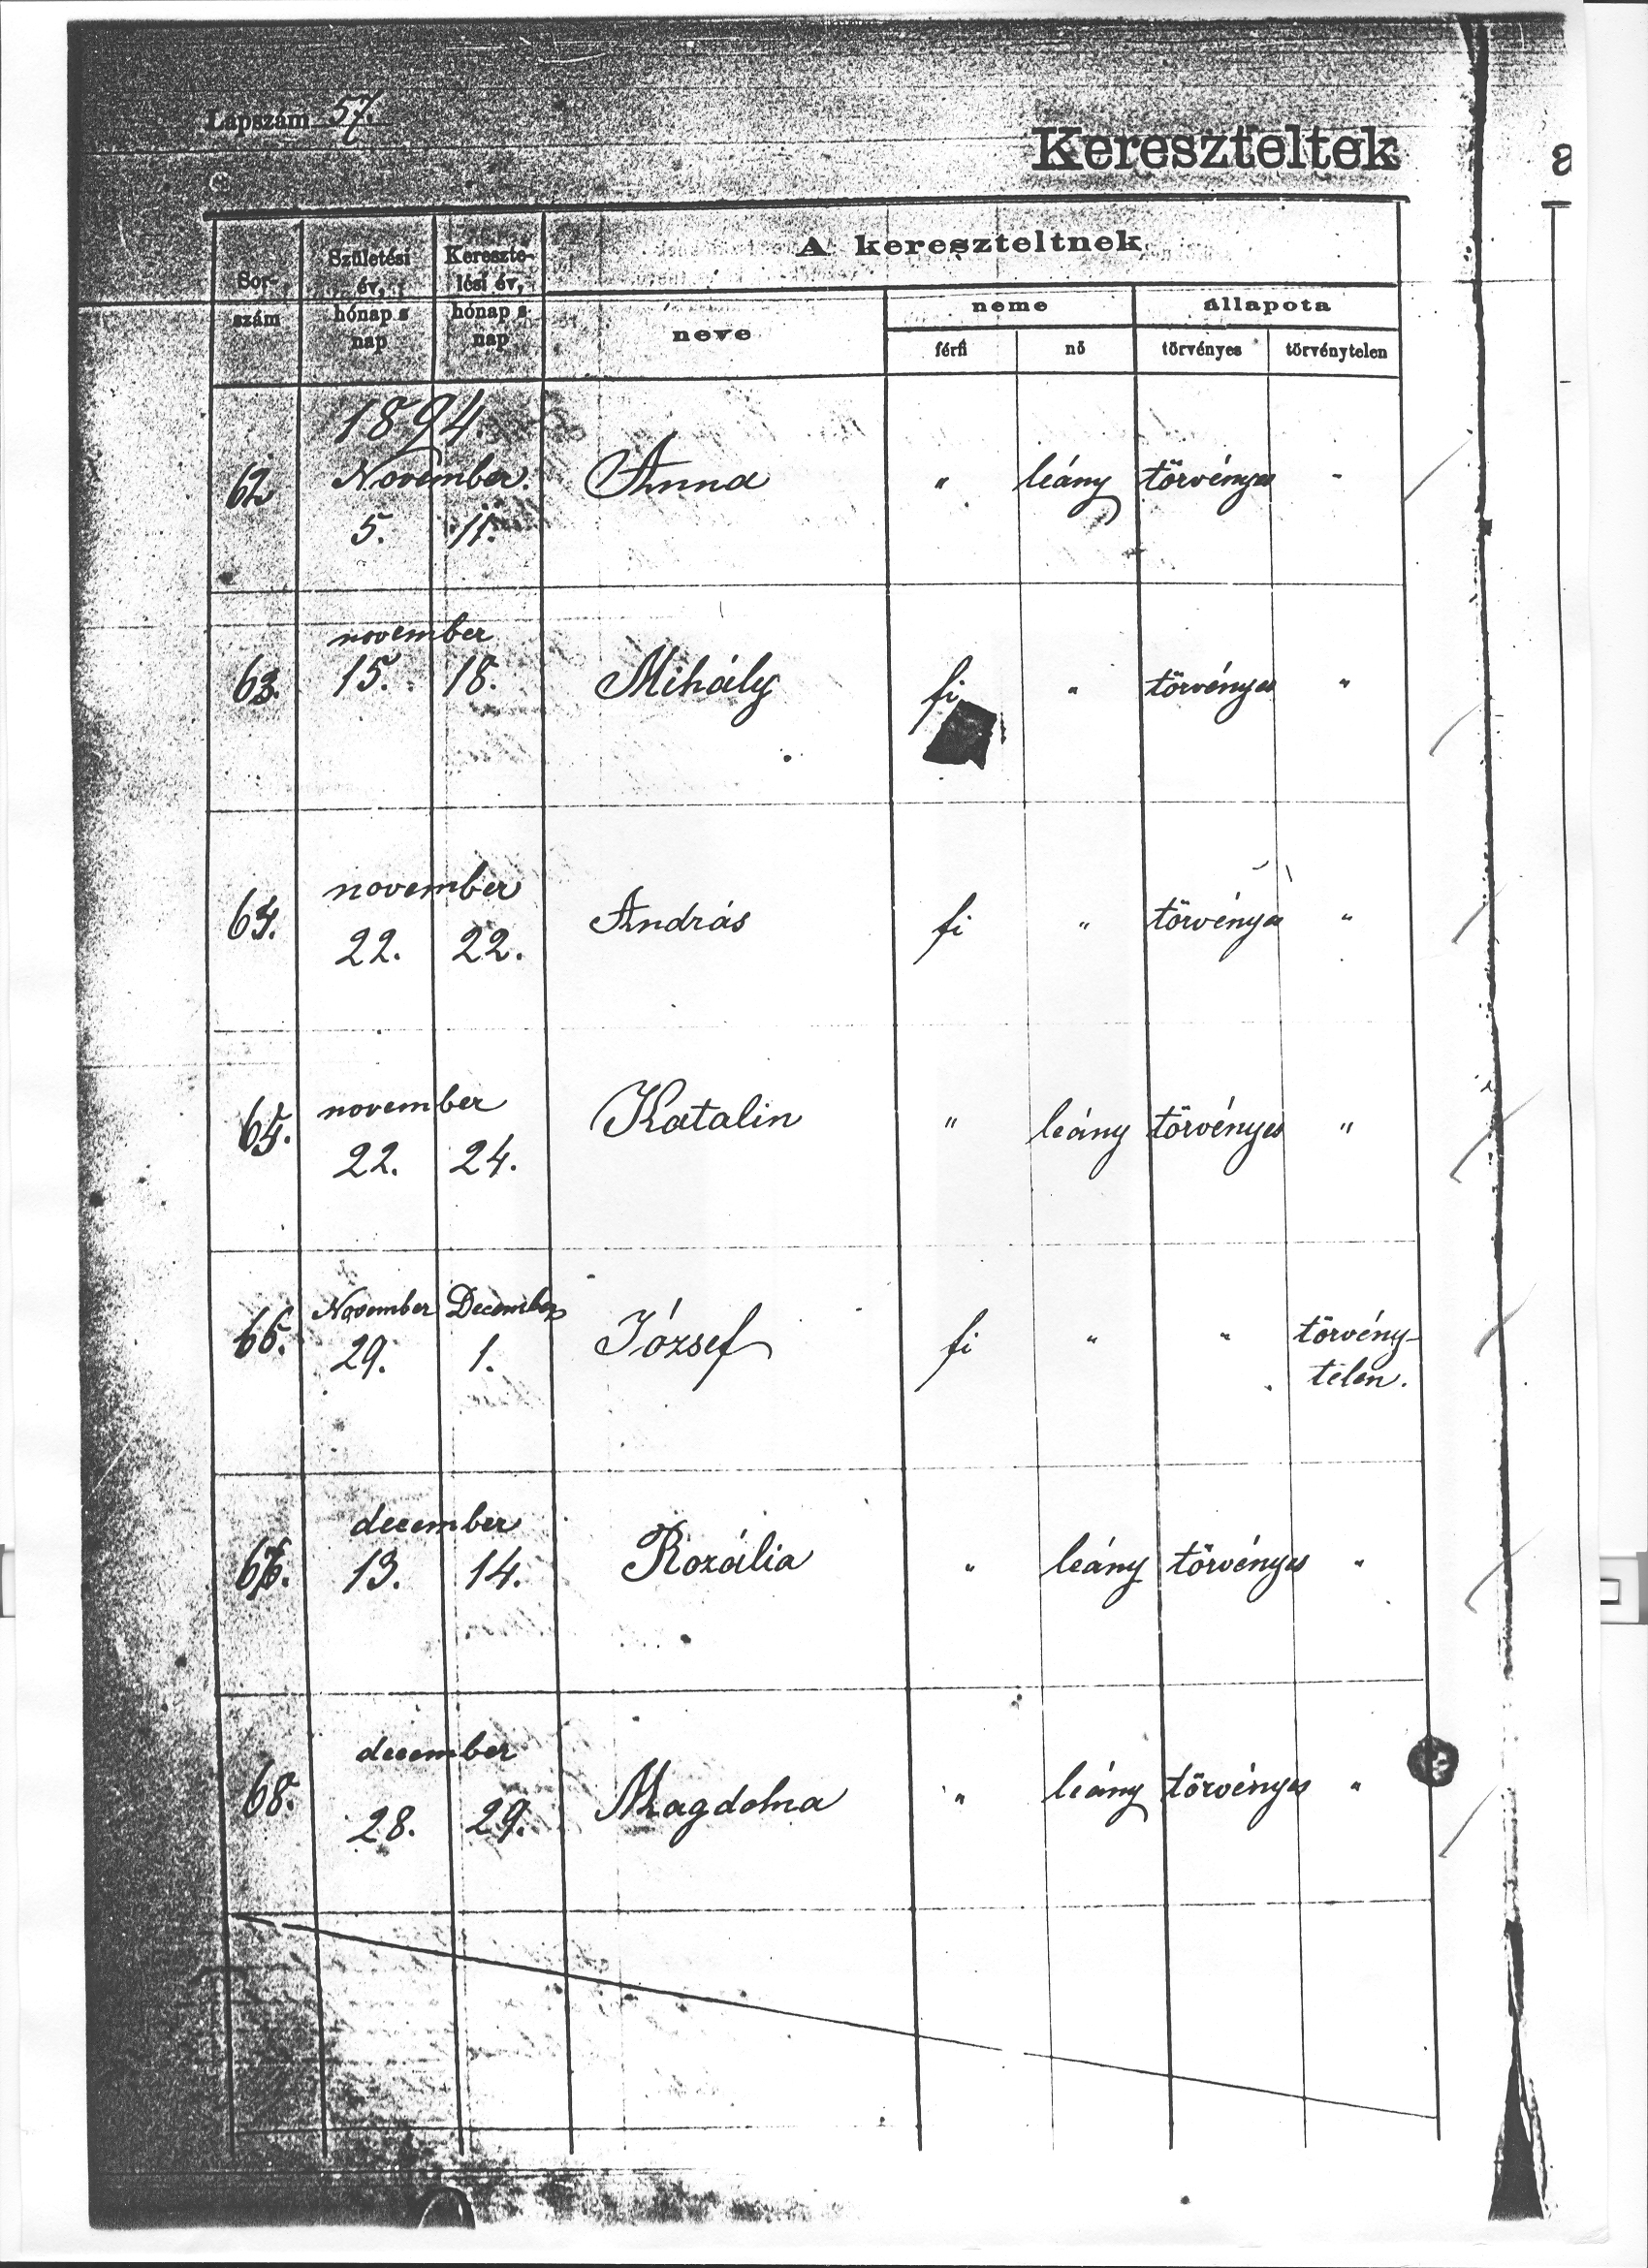 Lapszám 57.
Kereszteltek
A kereszteltnek
Sor-
szám
Születési
év,
hónap s
nap
Keresztelési év,
hónap s
nap
neve
neme
állapota
férfi
nő
törvényes
törvénytelen
1894.
62 November. 5. 11. Anna " leány törvényes -
63. november 15. 18. Mihály fi " törvényes "
64. november 22. 22. András fi " törvényes "
65. november 22. 24. Katalin " leány törvényes "
66. November 29. December 1. József fi " " törvény-
telen.
67. december 13. 14. Rozália " leány törvényes "
68. december 28. 29. Magdolna " leány törvényes "